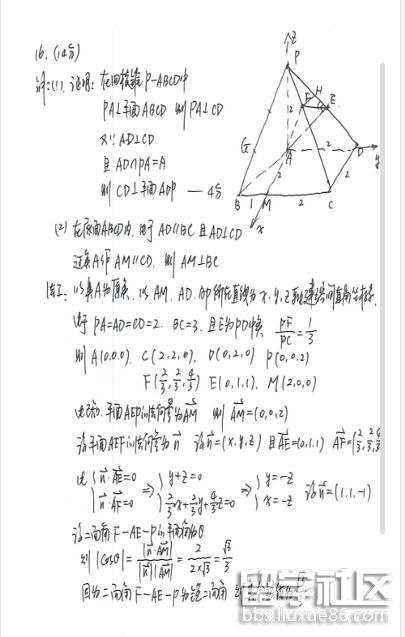 16.(14分)
证:(1).证明:在四棱锥P-ABCD中
PA⊥平面ABCD 则PA⊥CD
又∵AD⊥CD
且AD∩PA=A
则CD⊥平面ADP —— 4分
(2) 在底面ABCD内,由于AD∥BC且AD⊥CD
过点A作AM∥CD,则AM⊥BC
法工:以点A为原点,以AM、AD、AP所在直线为x、y、z轴建空间直角坐标
由于PA=AD=CD=2,BC=3,且E为PD中点 PF/PC=1/3
则A(0.0.0), C(2,2,0), D(0,2,0) P(0,0,2)
F(2/3,2/3,4/3) E(0,1,1), M(2,0,0)
平面AEP的法向量为AM 则AM=(0,0,2)
设平面AEF的法向量为n 设n=(x,y,z)且AE=(0,1,1) AF=(2/3,2/3,4/3
n·AE=0 ⇒ y+z=0 ⇒ y=-z 设n=(1,1,-1)
n·AF=0 2/3x+2/3y+4/3z=0 x=-z
设二面角F-AE-P的平面角为θ
则|cosθ|=|n·AM|/|n||AM|=2/2×√3=√3/3
因为二面角F-AE-P为锐二面角
z
P
H
F
E
2
G
A
2
D
y
2
2
B
1
M
2
C
x
留学社区
bbs.liuxue86.com